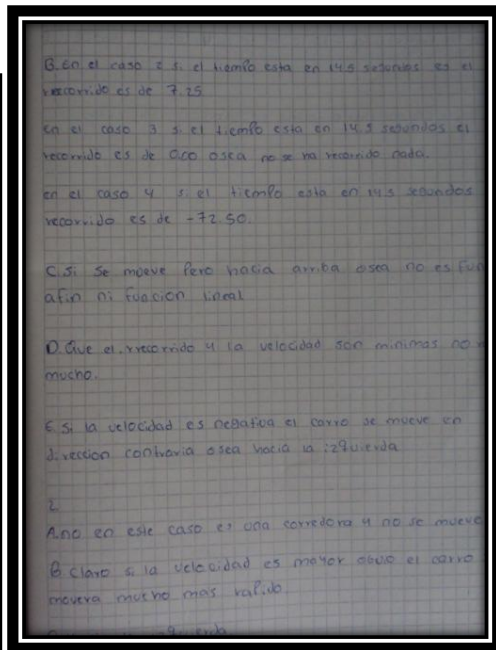 B. En el caso 2 si el tiempo esta en 14.5 segundos es el
recorrido es de 7.25
en el caso 3 si el tiempo esta en 14.5 segundos el
recorrido es de 0.00 osea no se ha recorrido nada.
en el caso 4 si el tiempo esta en 14.5 segundos
recorrido es de -72.50.
C. Si se mueve pero hacia arriba osea no es fun
afin ni funcion lineal
D. Que el rrecorrido y la velocidad son minimas no
mucho.
E si la velocidad es negativa el carro se mueve en
direccion contraria osea hacia la izquierda
2
A no en este caso es una corredora y no se mueve
B claro si la velocidad es mayor obvio el carro
movera mucho mas rapido